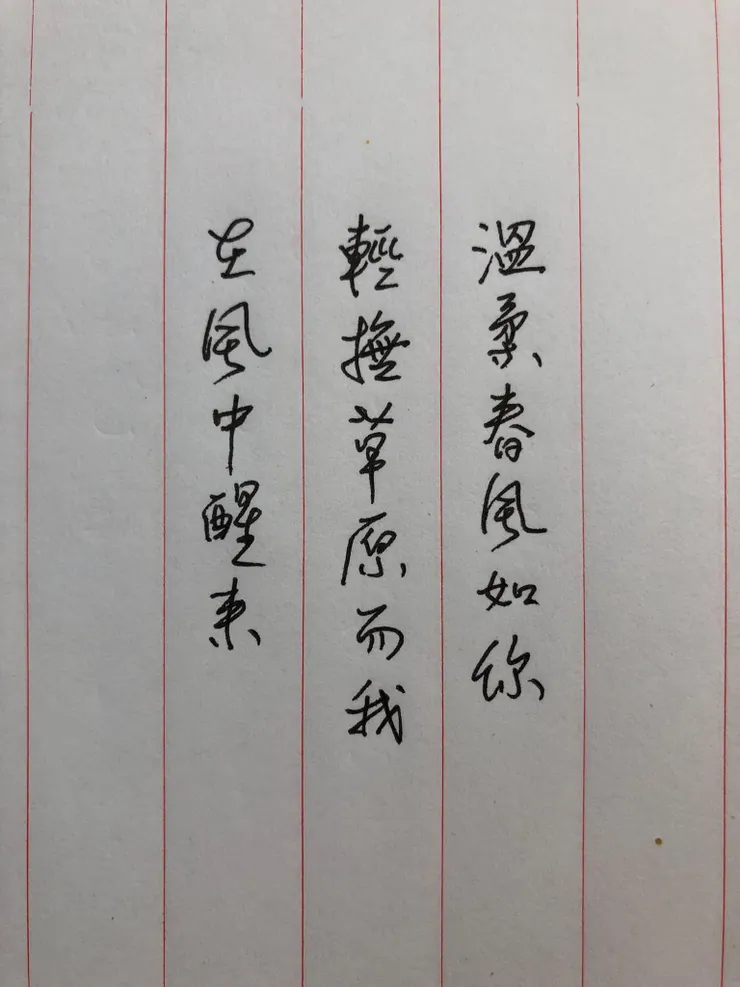 溫柔春風如你
輕撫草原而我
在風中醒來